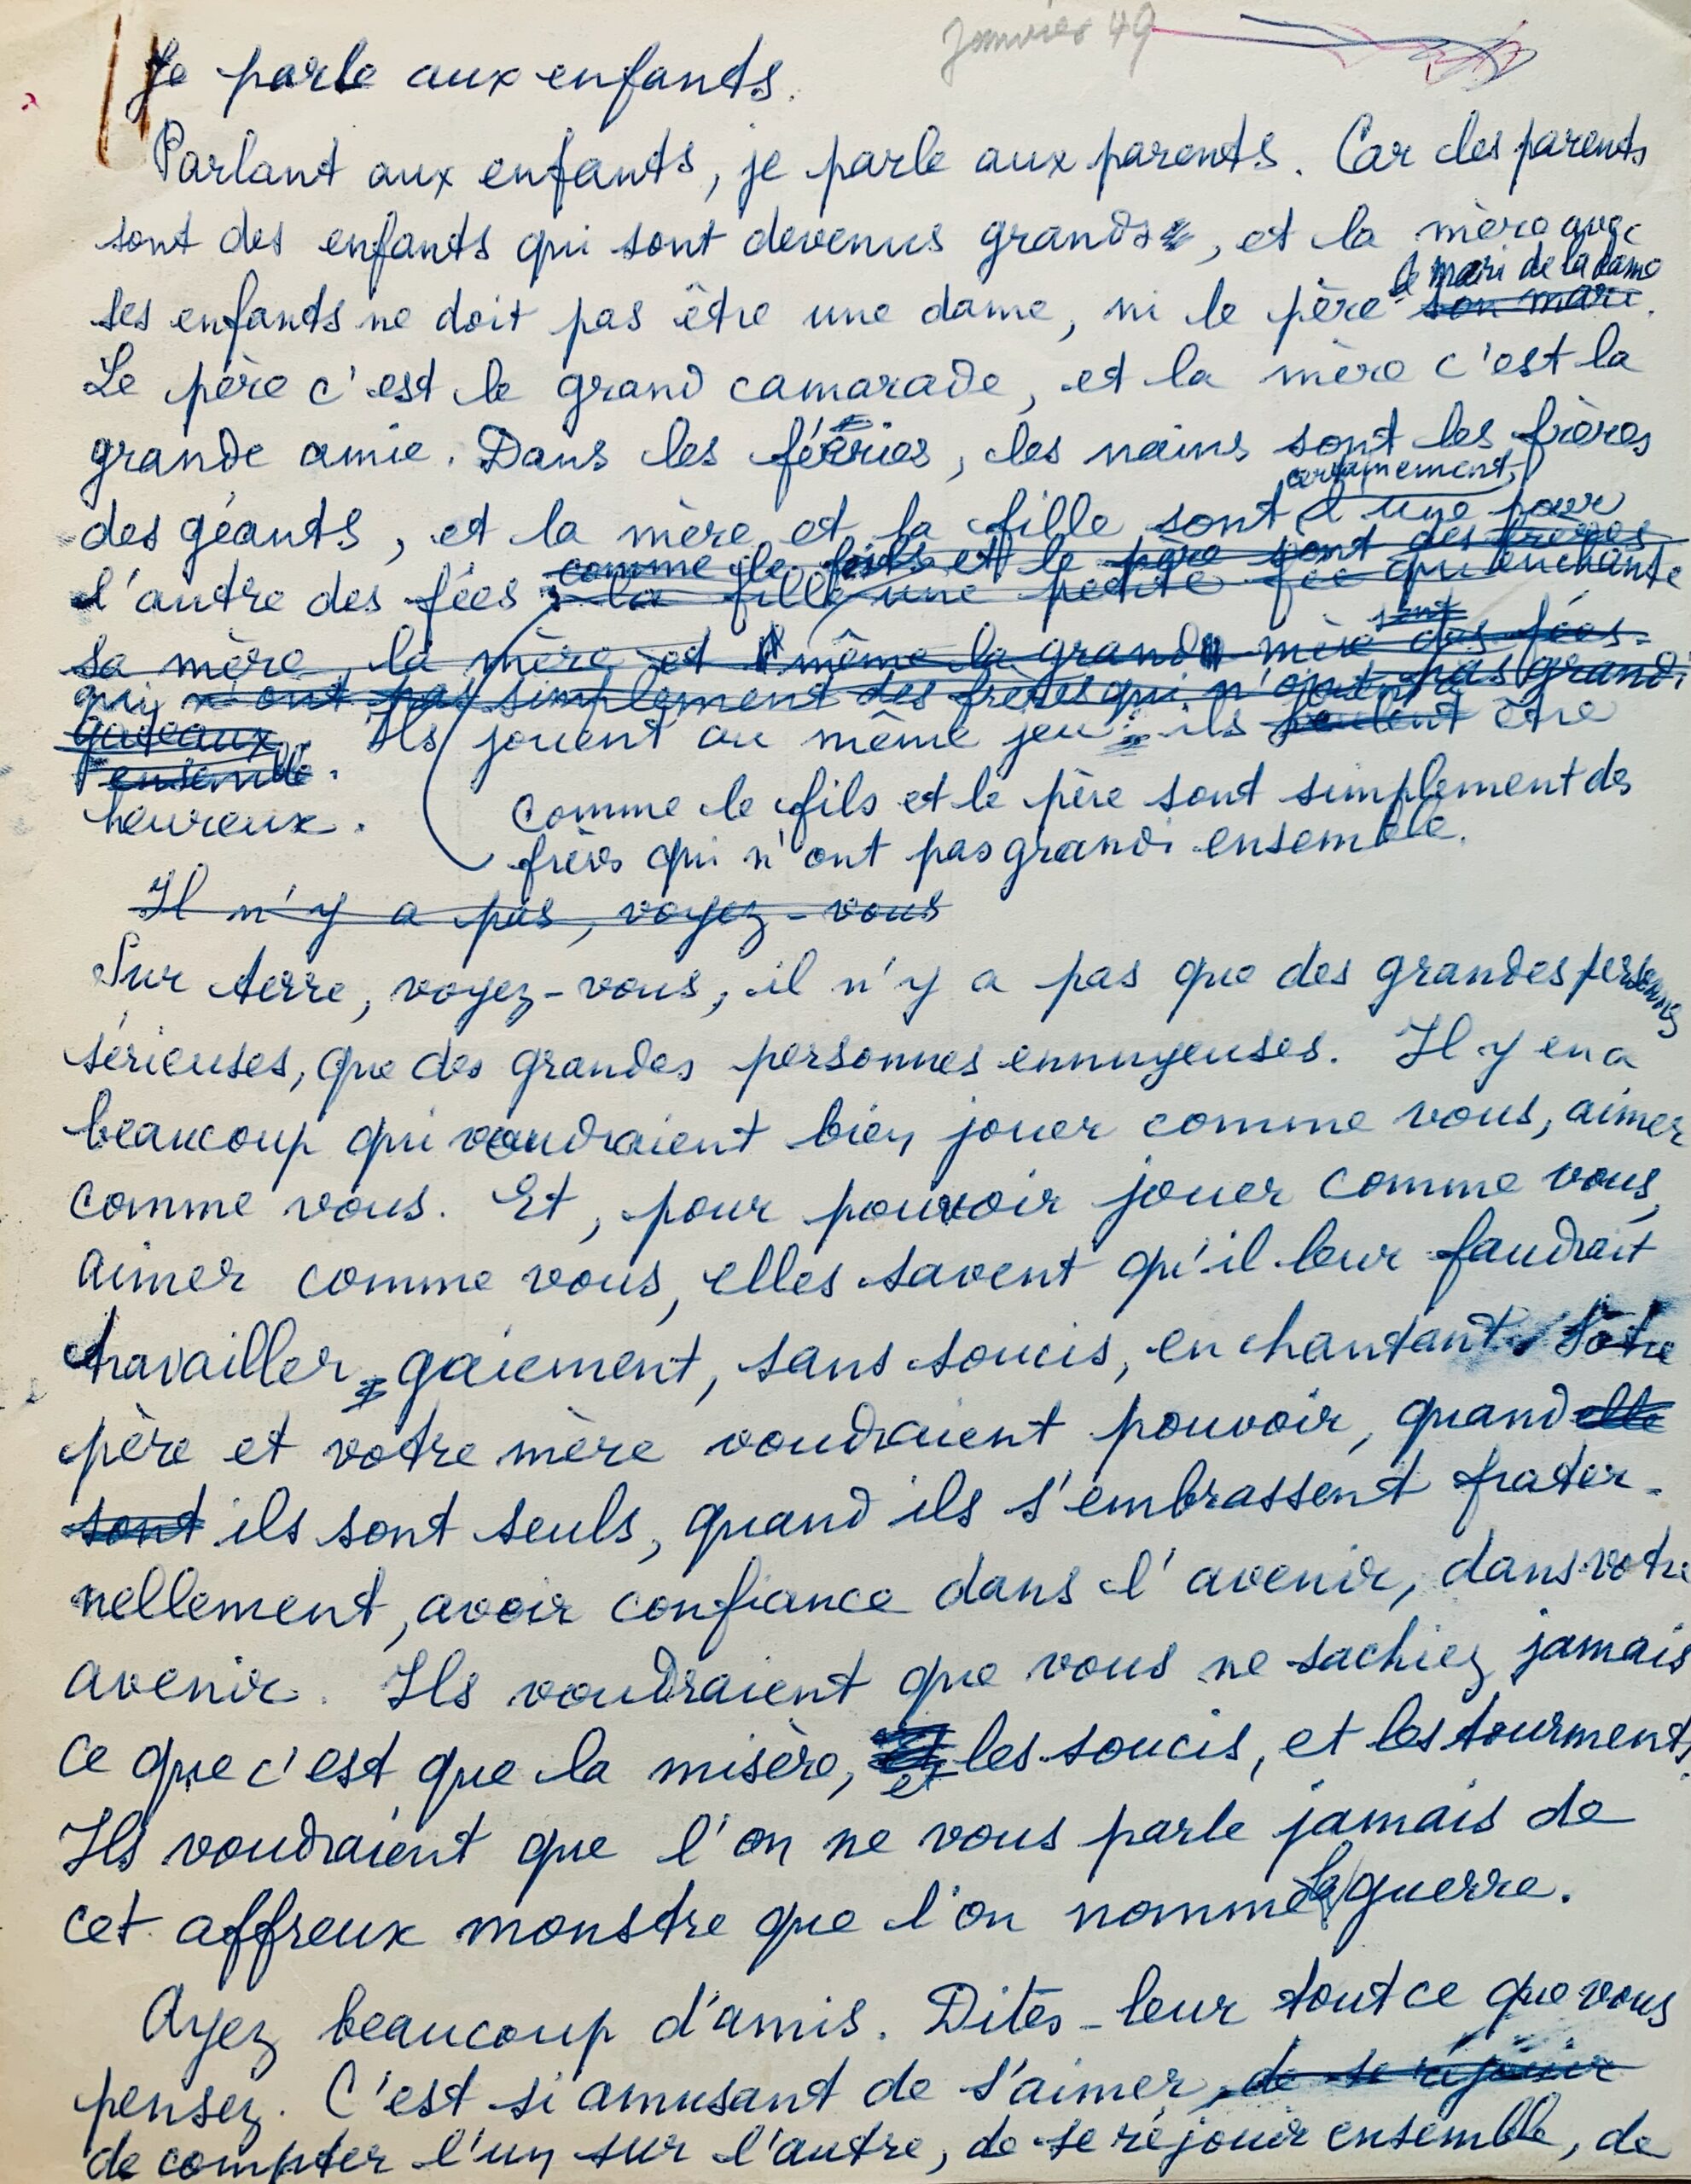 Janvier 49
Je parle aux enfants.
Parlant aux enfants, je parle aux parents. Car les parents
sont des enfants qui sont devenus grands, et la mère avec
le mari de la dame
ses enfants ne doit pas être une dame, ni le père son mari.
Le père c'est le grand camarade, et la mère c'est la
grande amie. Dans les féeries, les nains sont les frères
certainement,
des géants, et la mère et la fille sont l'une pour
comme le fils et le père sont des frères
l'autre des fées ; la fille une petite fée qui enchante
sont
sa mère, la mère et même la grand mère des fées.
qui n'ont pas simplement des frères qui n'ont pas grandi
gateaux. Ils jouent au même jeu : ils veulent être
ensemble.
heureux.
comme le fils et le père sont simplement des
frères qui n'ont pas grandi ensemble.
Il n'y a pas, voyez-vous
Sur terre, voyez-vous, il n'y a pas que des grandes personnes
sérieuses, que des grandes personnes ennuyeuses. Il y en a
beaucoup qui voudraient bien jouer comme vous, aimer
comme vous. Et, pour pouvoir jouer comme vous,
aimer comme vous, elles savent qu'il leur faudrait
travailler gaiement, sans soucis, en chantant. Votre
père et votre mère voudraient pouvoir, quand elle
sont ils sont seuls, quand ils s'embrassent frater-
nellement, avoir confiance dans l'avenir, dans votre
avenir. Ils voudraient que vous ne sachiez jamais
ce que c'est que la misère, et les soucis, et les tourments.
Ils voudraient que l'on ne vous parle jamais de
cet affreux monstre que l'on nomme la guerre.
Ayez beaucoup d'amis. Dites-leur tout ce que vous
pensez. C'est si amusant de s'aimer, de se réjouir
de compter l'un sur l'autre, de se réjouir ensemble, de